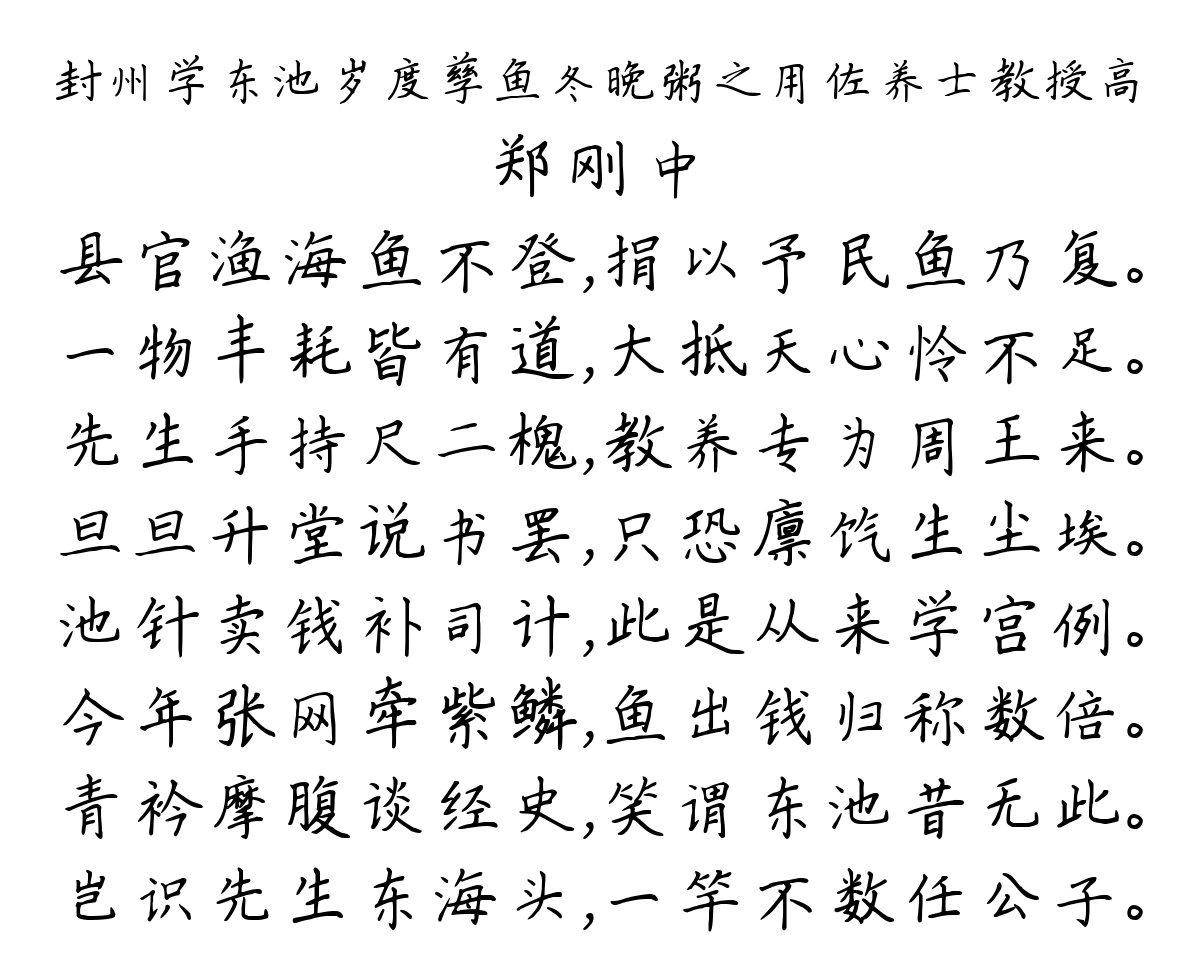 封州学东池岁度孳鱼冬晚粥之用佐养士教授高
郑刚中
县官渔海鱼不登,捐以予民鱼乃复。
一物丰耗皆有道,大抵天心怜不足。
先生手持尺二槐,教养专为周王来。
旦旦升堂说书罢,只恐廪饩生尘埃。
池针卖钱补司计,此是从来学宫例。
今年张网牵紫鳞,鱼出钱归称数倍。
青衿摩腹谈经史,笑谓东池昔无此。
岂识先生东海头,一竿不数任公子。